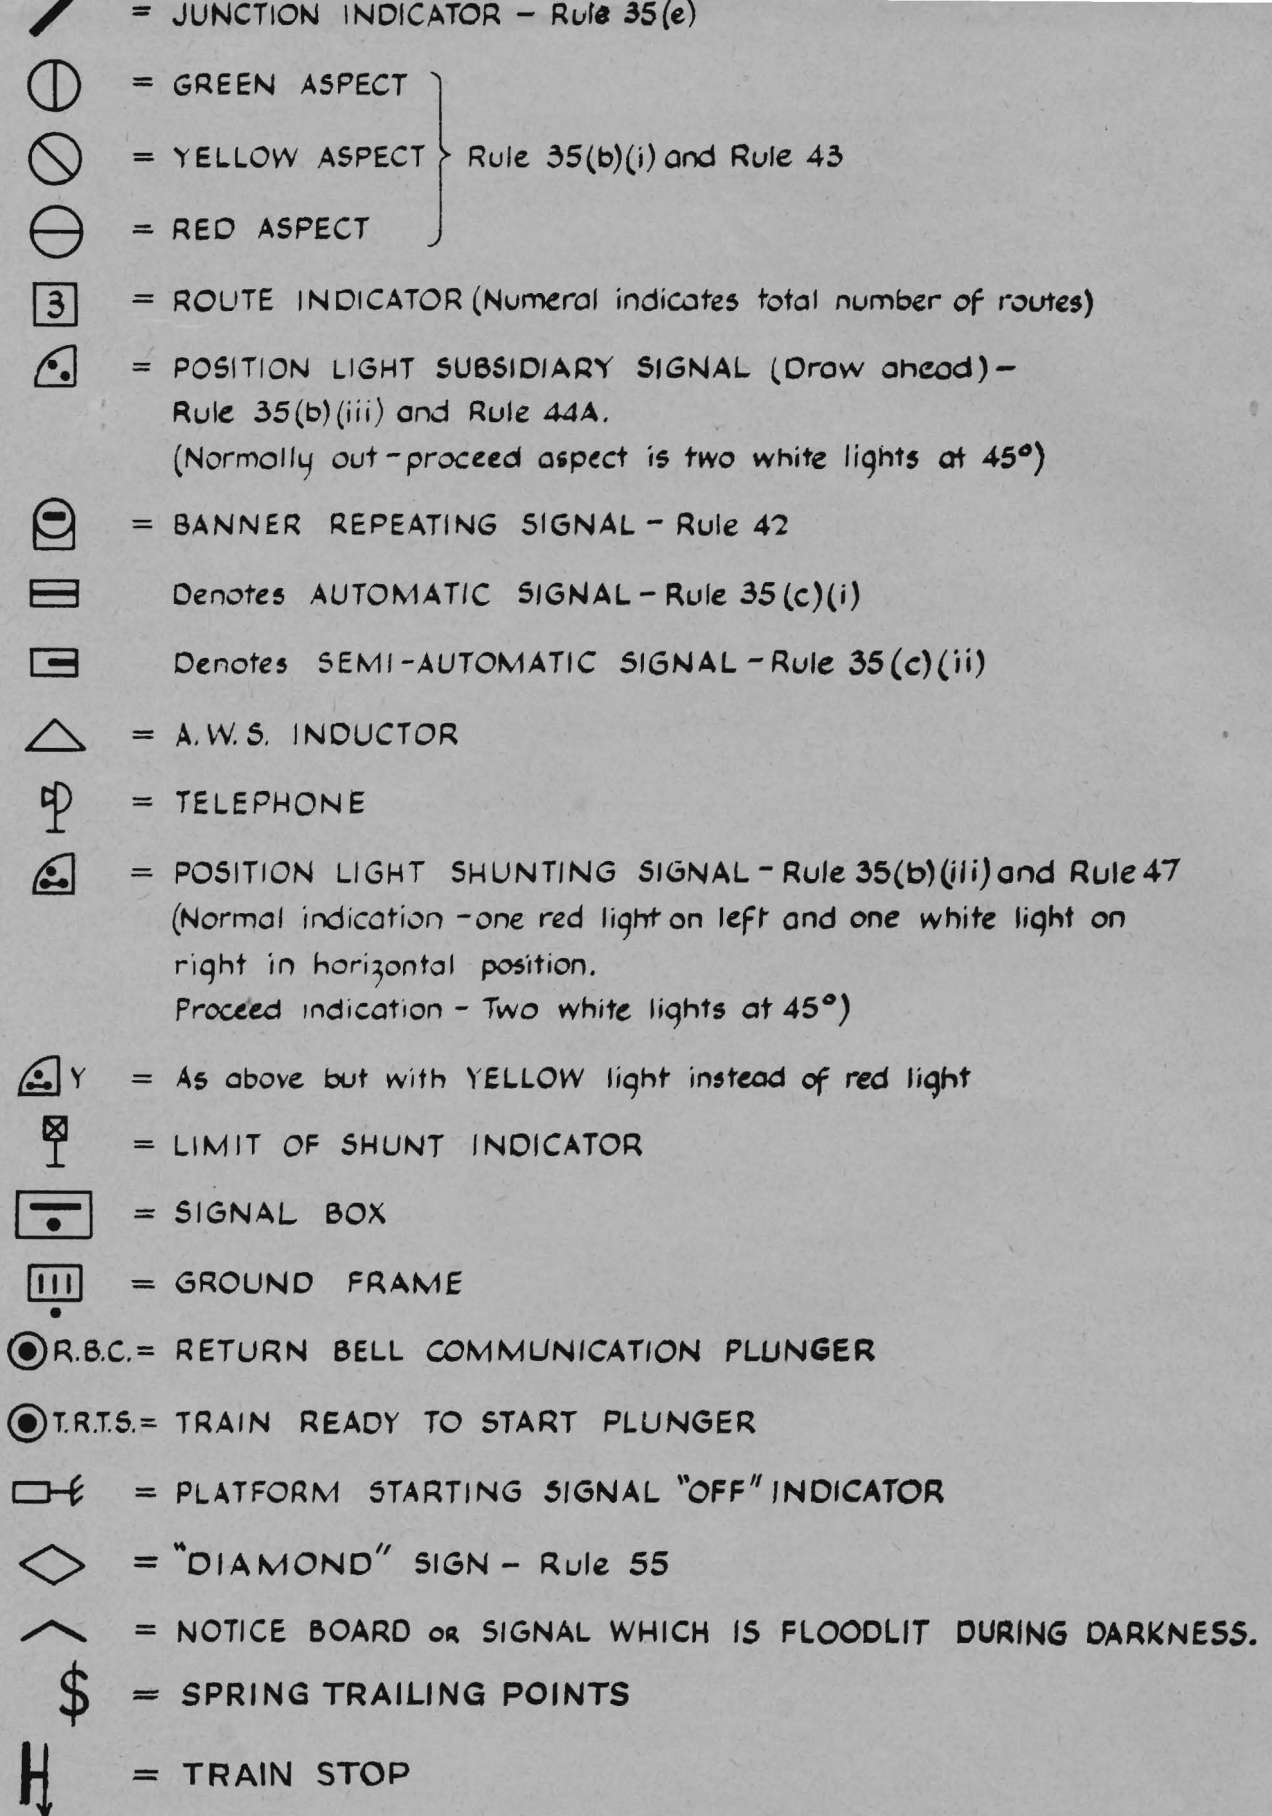 = JUNCTION INDICATOR - Rule 35(e)
= GREEN ASPECT
= YELLOW ASPECT Rule 35(b)(i) and Rule 43
= RED ASPECT
3 = ROUTE INDICATOR (Numeral indicates total number of routes)
= POSITION LIGHT SUBSIDIARY SIGNAL (Draw ahead) -
Rule 35(b)(iii) and Rule 44A.
(Normally out - proceed aspect is two white lights at 45°)
= BANNER REPEATING SIGNAL - Rule 42
Denotes AUTOMATIC SIGNAL - Rule 35(c)(i)
Denotes SEMI-AUTOMATIC SIGNAL - Rule 35(c)(ii)
= A.W.S. INDUCTOR
= TELEPHONE
= POSITION LIGHT SHUNTING SIGNAL - Rule 35(b)(iii) and Rule 47
(Normal indication - one red light on left and one white light on
right in horizontal position.
Proceed indication - Two white lights at 45°)
Y = As above but with YELLOW light instead of red light
= LIMIT OF SHUNT INDICATOR
= SIGNAL BOX
= GROUND FRAME
R.B.C. = RETURN BELL COMMUNICATION PLUNGER
T.R.T.S. = TRAIN READY TO START PLUNGER
= PLATFORM STARTING SIGNAL "OFF" INDICATOR
= "DIAMOND" SIGN - Rule 55
= NOTICE BOARD OR SIGNAL WHICH IS FLOODLIT DURING DARKNESS.
$ = SPRING TRAILING POINTS
= TRAIN STOP